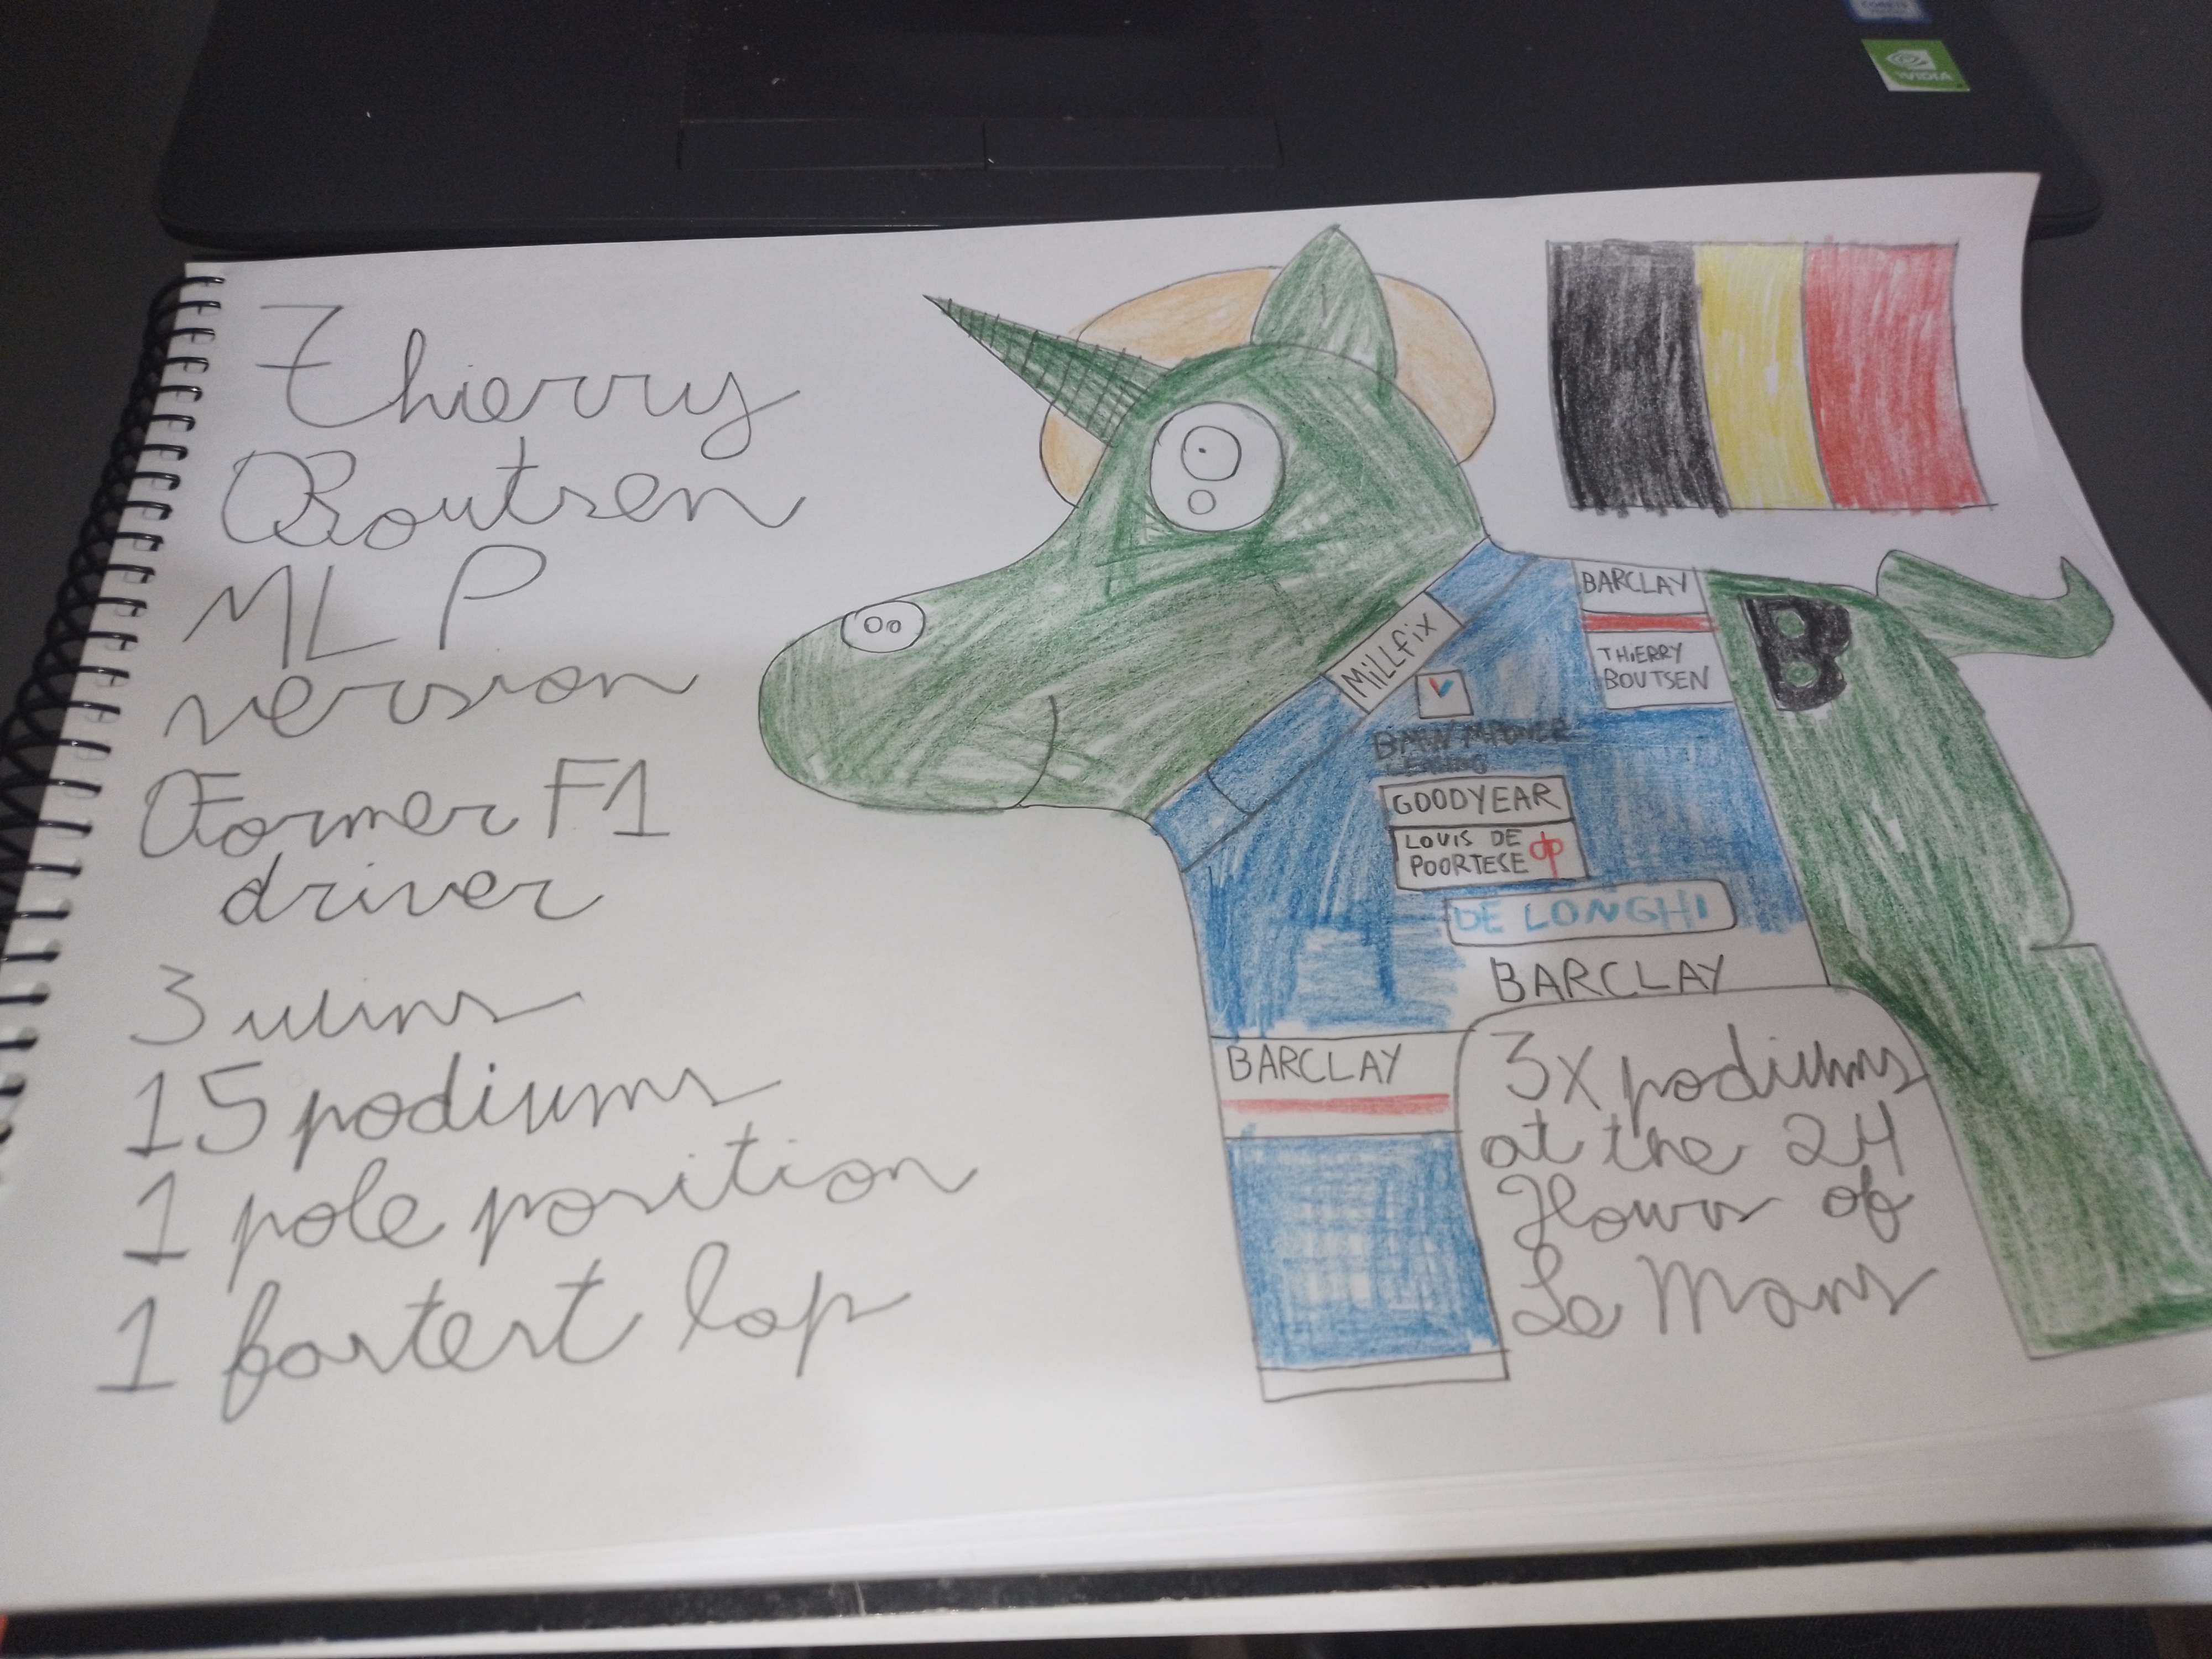 Thierry
Boutsen
MLP
version
Former F1
driver
3 wins
15 podiums
1 pole position
1 fastest lap
MiLLfix
BMW MPOWER
GOODYEAR
LOUIS DE
POORTESE dp
DE LONGHI
BARCLAY
BARCLAY
THiERRY
BOUTSEN
B
BARCLAY
3x podiums
at the 24
Hours of
Le Mans
NVIDIA